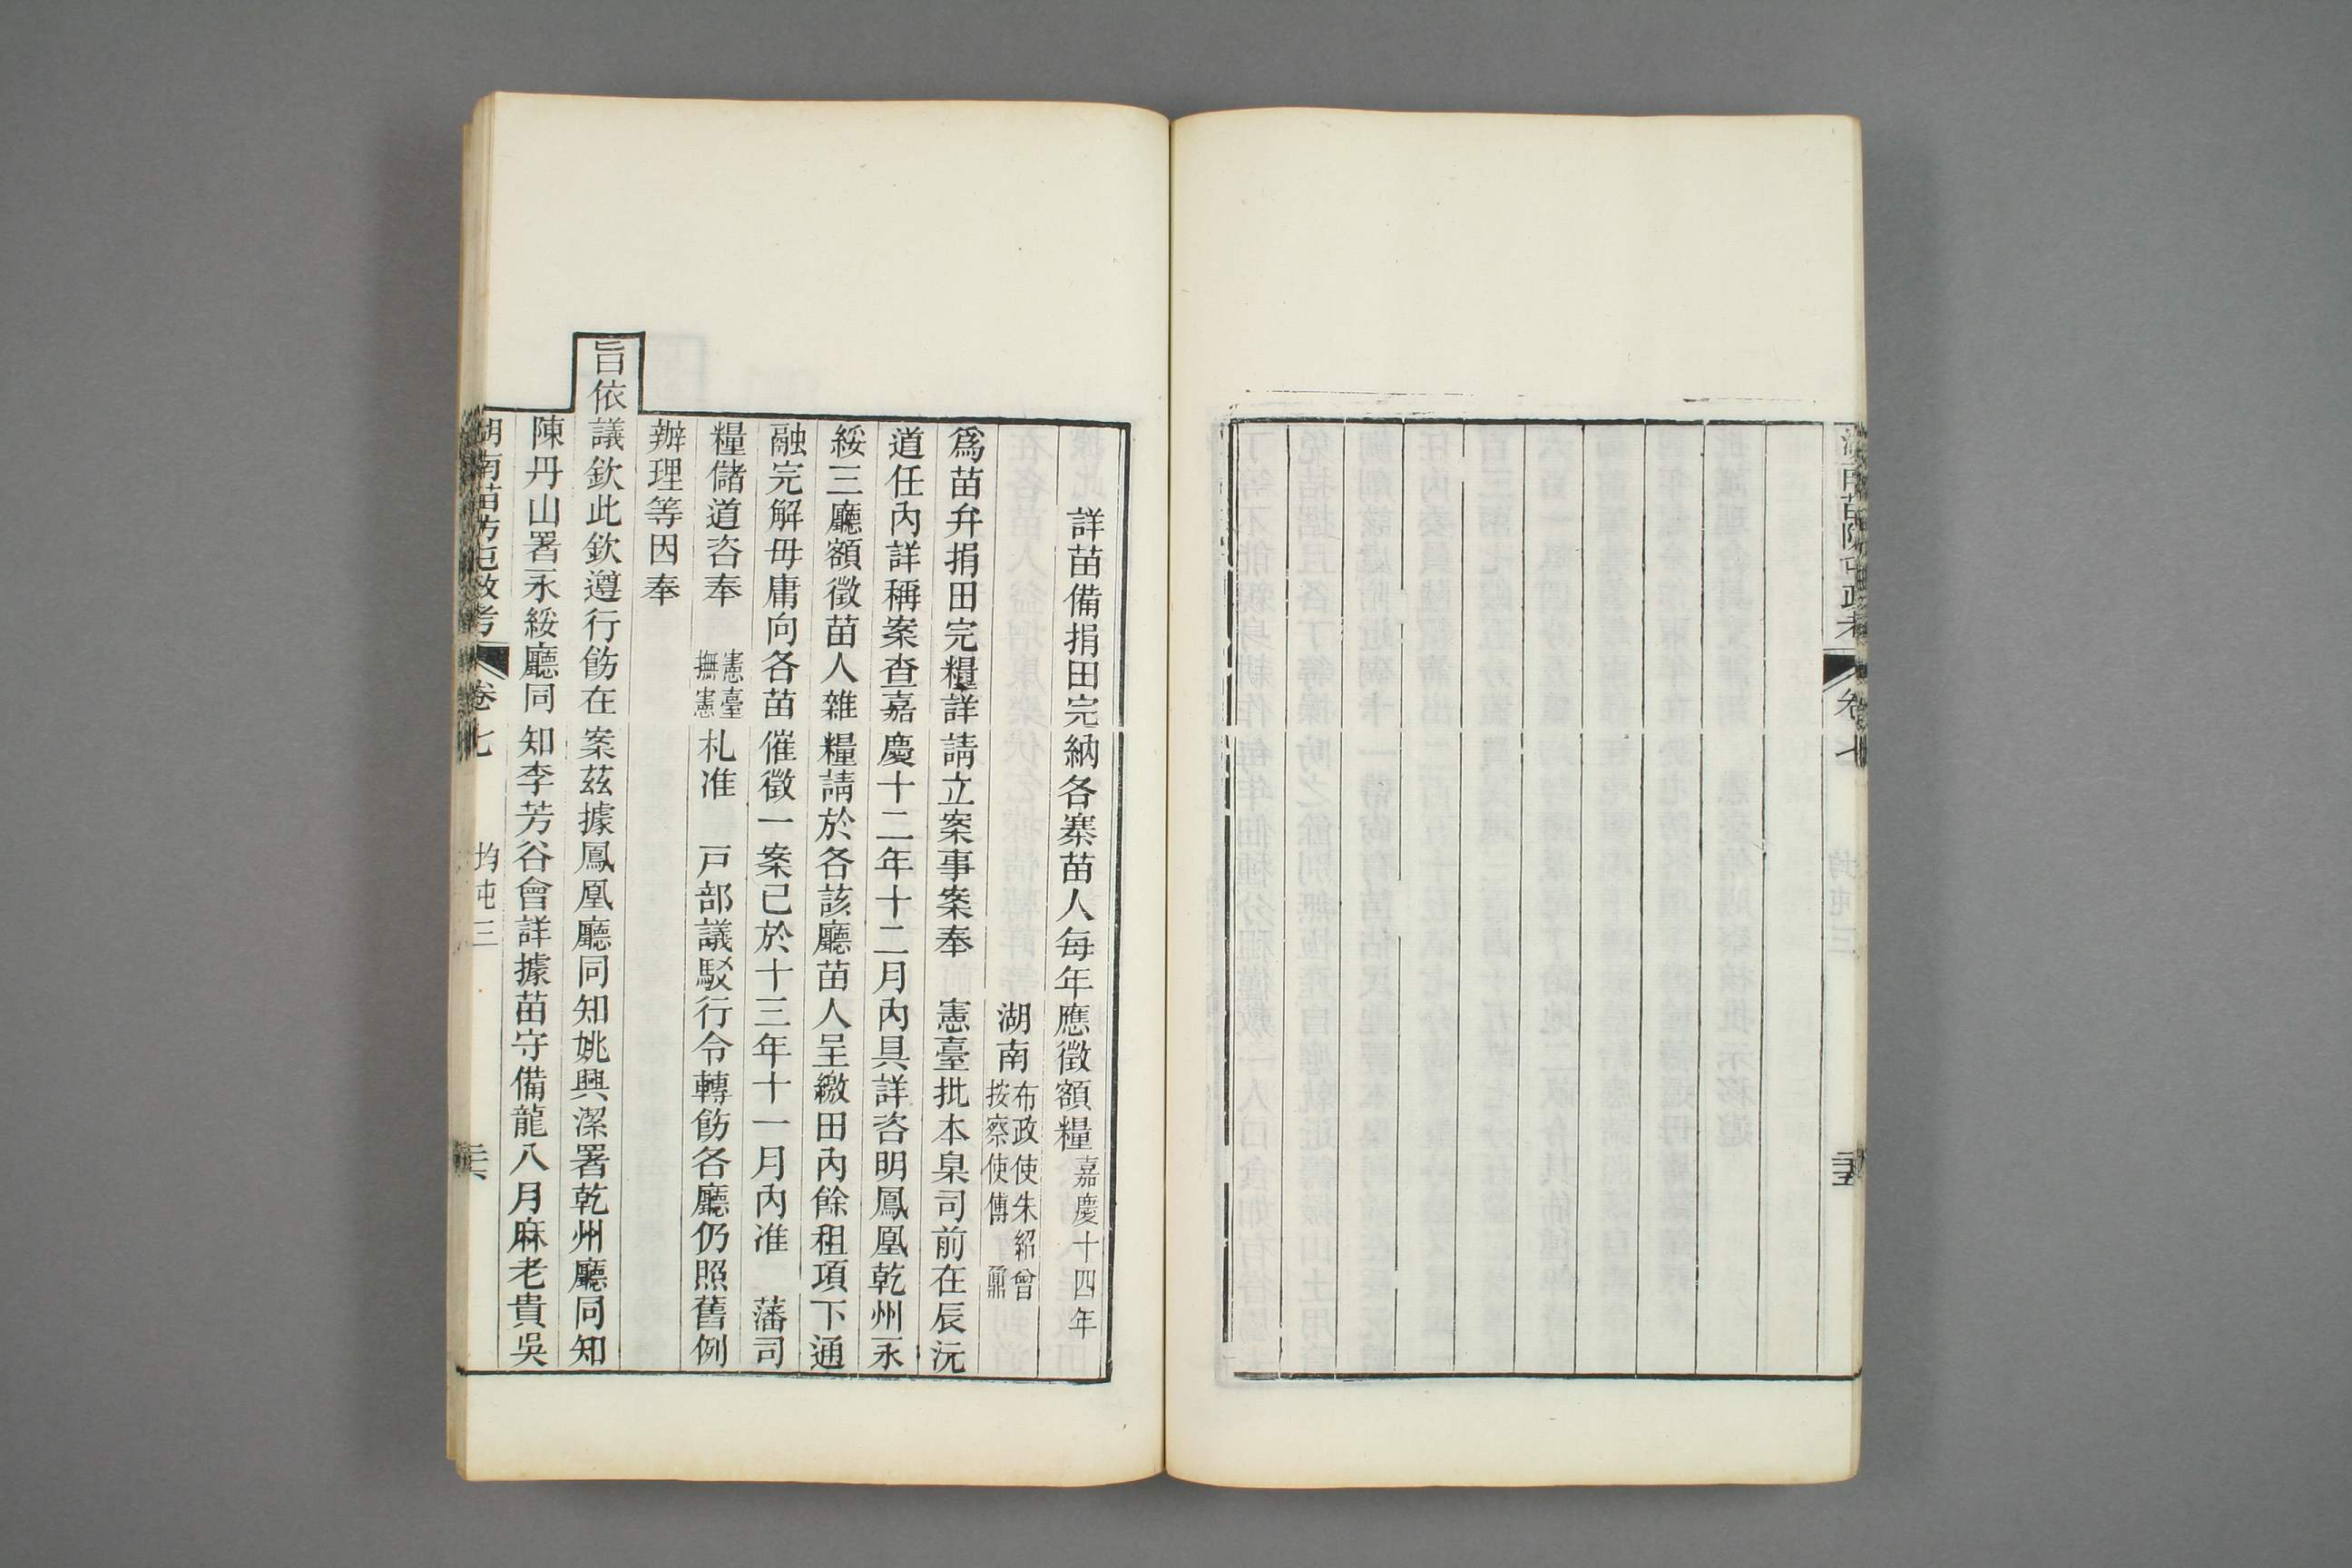 湖南苗防屯政考 卷七 均屯三 二十五
詳苗備捐田完納各寨苗人每年應徵額糧嘉慶十四年
湖南布政使朱紹曾按察使傅鼐
爲苗弁捐田完糧詳請立案事案奉 憲臺批本臬司前在辰沅
道任內詳稱案查嘉慶十二年十二月內具詳咨明鳳凰乾州永
綏三廳額徵苗人雜糧請於各該廳苗人呈繳田內餘租項下通
融完解毋庸向各苗催徵一案已於十三年十一月內准 藩司
糧儲道咨奉 憲臺撫憲札准 戸部議駁行令轉飭各廳仍照舊例
辦理等因奉
旨依議欽此欽遵行飭在案茲據鳳凰廳同知姚興潔署乾州廳同知
陳丹山署永綏廳同知李芳谷會詳據苗守備龍八月麻老貴吳
湖南苗防屯政考 卷七 均屯三 二十六